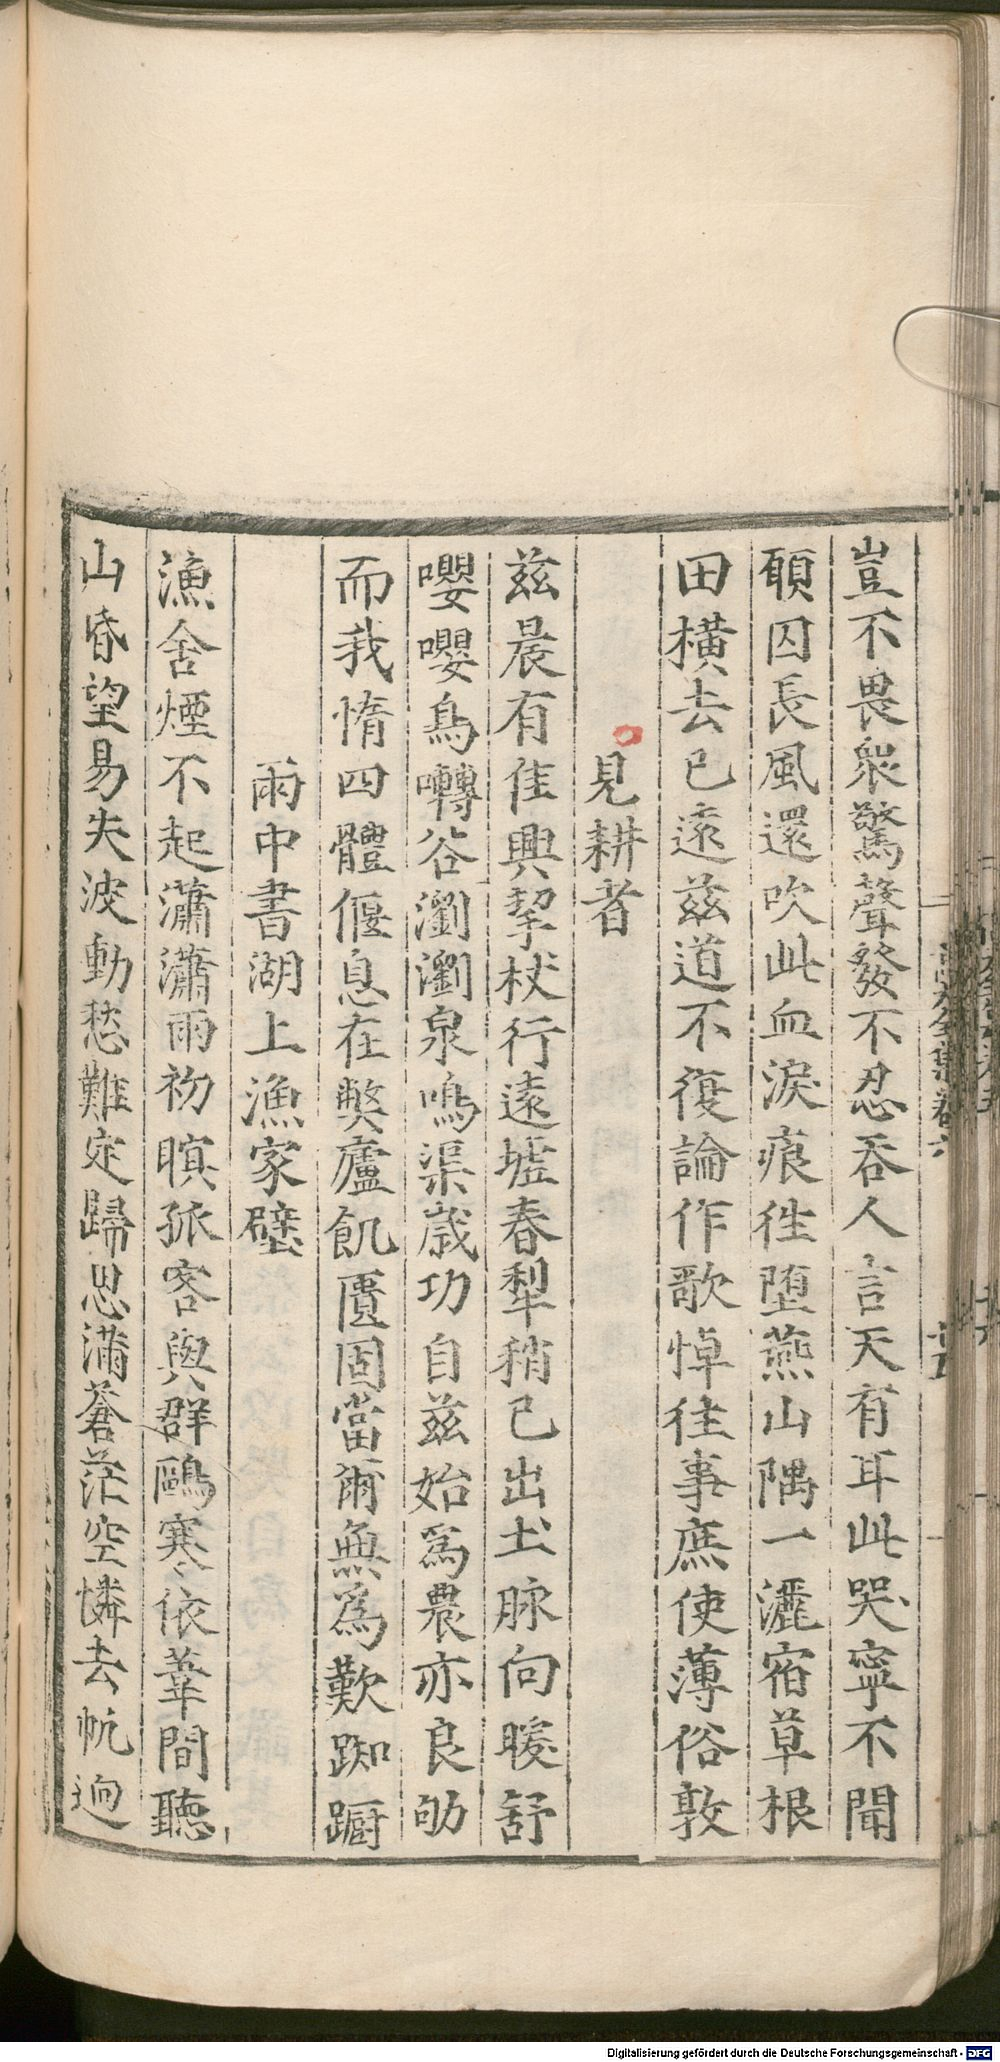 豈不畏衆驚聲發不忍吞人言天有耳此哭寧不聞
願囚長風還吹此血淚痕徃堕燕山隅一灑宿草根
田橫去已遠兹道不復論作歌悼往事庶使薄俗敦
見耕者
兹晨有佳興挈杖行遠墟春犁稍已出土脉向暖舒
嚶嚶鳥囀谷瀏瀏泉鳴渠歲功自兹始爲農亦良劬
而我惰四體偃息在獘廬飢匱固當爾無爲歎踟蹰
雨中書湖上漁家壁
漁舍煙不起瀟瀟雨初暝孤客與群鷗寒依葦間聽
山昏望易失波動愁難定歸思滿蒼茫空憐去帆迥
Digitalisierung gefördert durch die Deutsche Forschungsgemeinschaft - DFG